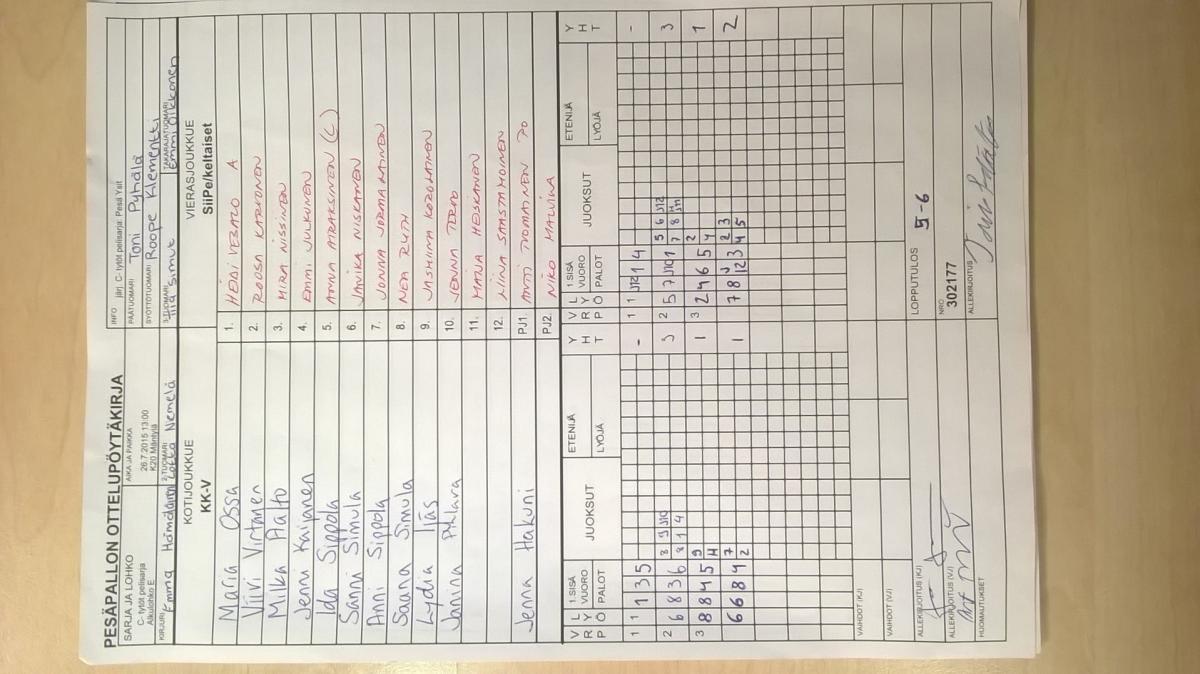 PESÄPALLON OTTELUPÖYTÄKIRJA
SARJA JA LOHKO
C- tytöt pelisarja
Alkulohko E
AIKA JA PAIKKA
26.7.2015 13:00
K20 Mäntylä
INFO järj. C- tytöt pelisarja: Pesä Ysit
PÄÄTUOMARI Toni Pyhälä
SYÖTTÖTUOMARI Roope Klementti
KIRJURI Emma Hämäläinen
2-TUOMARI Lotta Nemelä
3-TUOMARI Iiia Simut
TAKARAJATUOMARI Emmi Oikkonen
KOTIJOUKKUE
KK-V
VIERASJOUKKUE
SiiPe/keltaiset
Maria Ossa 1. HEIDI VEPALO A
Viivi Virtanen 2. ROOSA KARHONEN
Milka Aalto 3. MIRA NISSINEN
Jenni Kaijanen 4. EMMI JULKUNEN
Ida Sippola 5. ANNA AIRAKSINEN (C)
Sanni Simula 6. JANIKA NISKANEN
Anni Sippola 7. JONNA JORMALAINEN
Saana Simula 8. NEA RUTH
Lydia Iiäs 9. JASMIINA KOROLAINEN
Janina Pyhlava 10. JENNA TORMO
11. MAIJA HEISKANEN
12. NIINA SAASTAMOINEN
Jenna Hakuni PJ1. ANTTI TIOMAINEN PO
PJ2. NIKO MALVINA
V R P L Y Ö 1.SISÄ VUORO PALOT JUOKSUT ETENIJÄ LYÖJÄ Y H T
V R P L Y Ö 1.SISÄ VUORO PALOT JUOKSUT ETENIJÄ LYÖJÄ Y H T
1 1 1 3 5 - 1 1 J12 1 4 -
2 6 8 3 6 3 2 5 7 J10 1 3
3 8 8 4 5 1 3 2 4 6 5 1
6 6 8 4 1 7 8 J 12 3 4 2
VAIHDOT (KJ)
VAIHDOT (VJ)
ALLEKIRJOITUS (KJ)
LOPPUTULOS 5-6
ALLEKIRJOITUS (VJ)
NRO
302177
HUOMAUTUKSET
ALLEKIRJOITUS